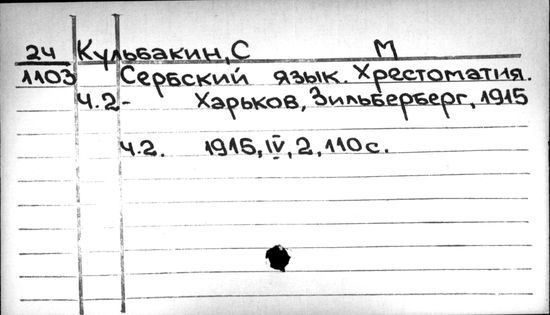 24 Кульбакин, С М
1103 Сербский язык. Хрестоматия.
Ч.2- Харьков, Зильберберг, 1915
Ч.2. 1915, IV, 2, 110 с.